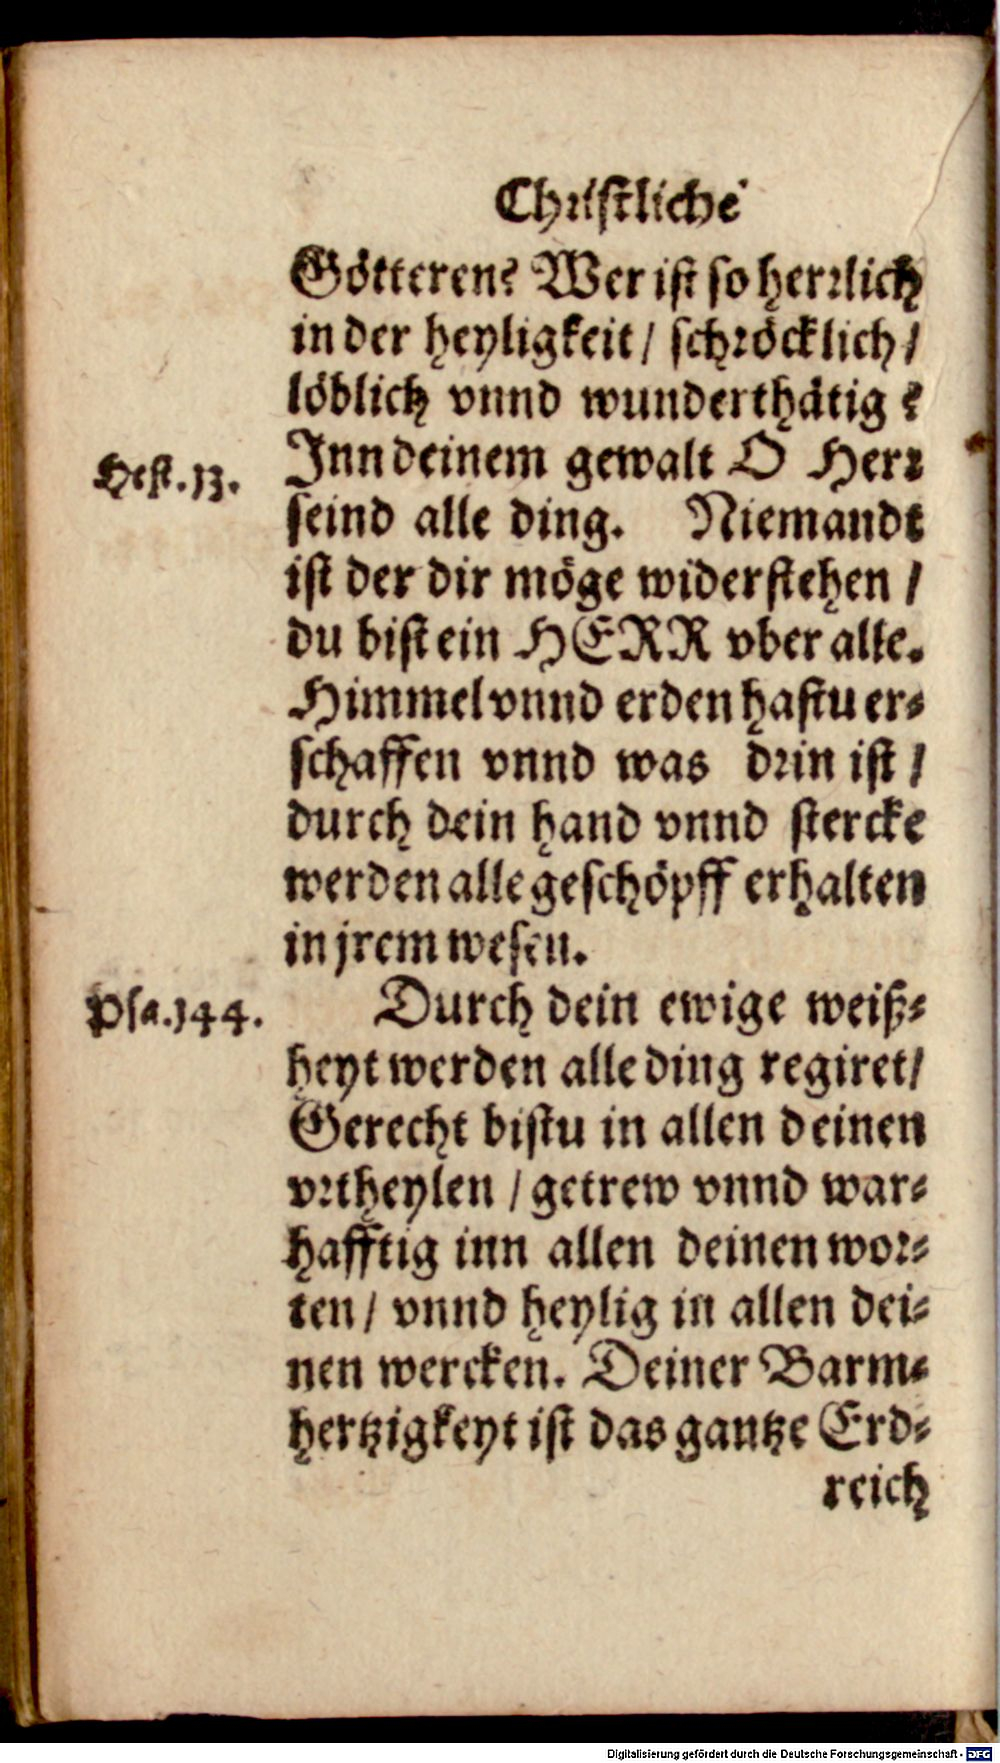 Christliche
Götteren? Wer ist so herrlich
in der heyligkeit / schröcklich /
löblich vnnd wunderthätig?
Hest. 13.
Inn deinem gewalt O Herr
seind alle ding. Niemandt
ist der dir möge widerstehen /
du bist ein HERR vber alle.
Himmel vnnd erden hastu er-
schaffen vnnd was drin ist /
durch dein hand vnnd stercke
werden alle geschöpff erhalten
in jrem wesen.
Psa. 144.
Durch dein ewige weiß-
heyt werden alle ding regiret /
Gerecht bistu in allen deinen
vrtheylen / getrew vnnd war-
hafftig inn allen deinen wor-
ten / vnnd heylig in allen dei-
nen wercken. Deiner Barm-
hertzigkeyt ist das gantze Erd-
reich
Digitalisierung gefördert durch die Deutsche Forschungsgemeinschaft - DFG